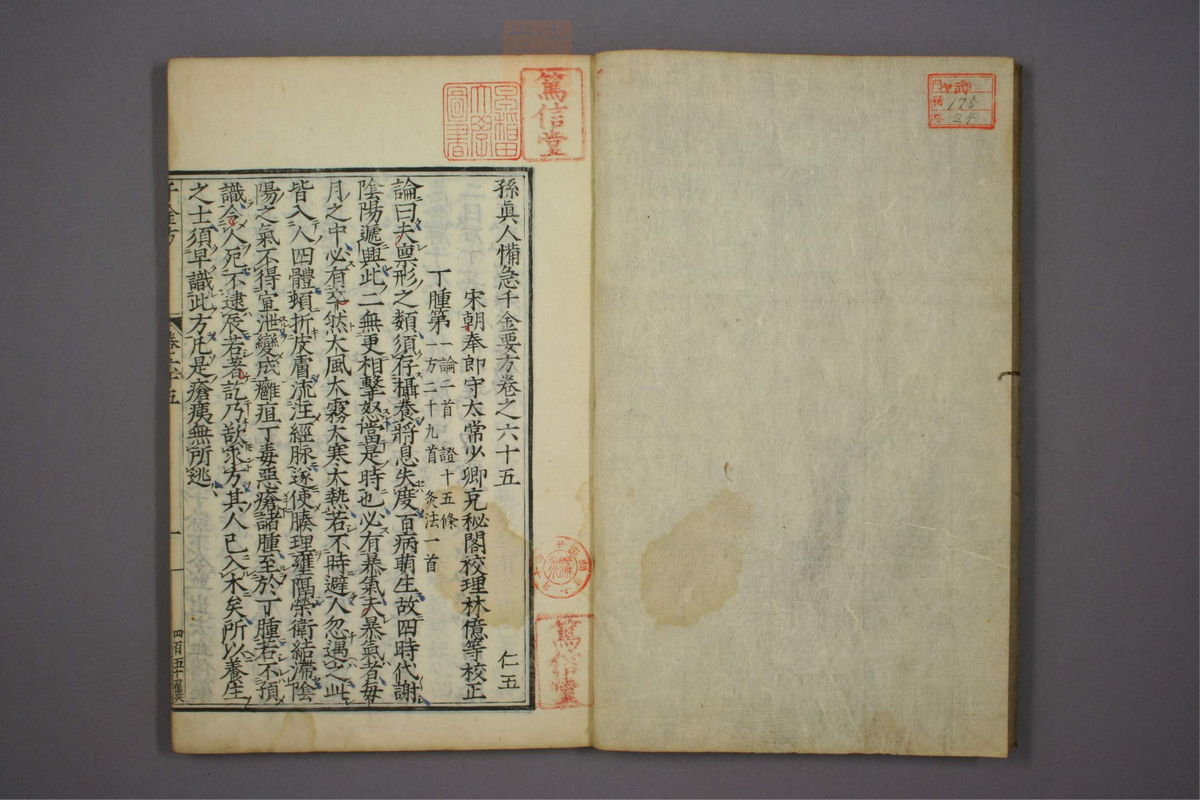 孫眞人備急千金要方卷之六十五
仁五
宋朝奉郎守太常少卿充秘閣校理林億等校正
丁腫第一 論二首 證十五條
方二十九首 灸法一首
論曰夫禀形之類須存攝養將息失度百病萌生故四時代謝
陰陽遞興此二無更相擊怒當是時也必有暴氣夫暴氣者每
月之中必有卒然大風大霧大寒大熱若不時避人忽遇之此
皆入人四體頞折皮膚流注經脉遂使腠理壅隔榮衛結滯陰
陽之氣不得宣泄變成癰疽丁毒惡瘡諸腫至於丁腫若不預
識令人死不逮辰若著訖乃欲求方其人已入木矣所以養生
之士須早識此方凡是瘡痍無所逃
千金方
卷六十五
一
四百五十
篤信堂
早稲田
大學
圖書
篤信堂
175
24